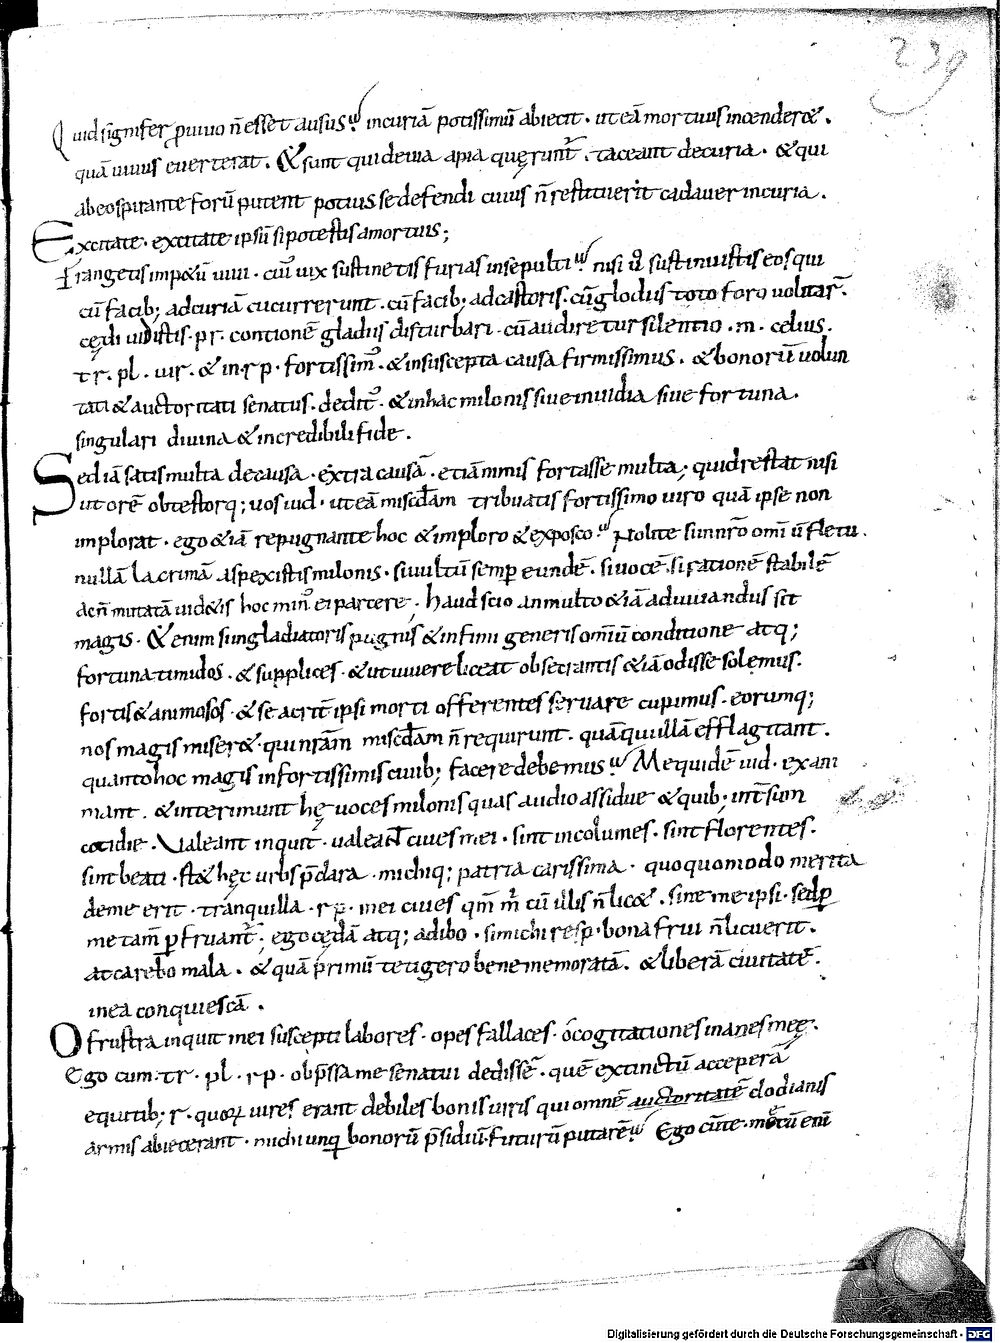 239
Quid signifer p uiuo ñ esset ausus? in curiā potissimū abiecit. ut eā mortuus incenderet.
quā uiuus euerterat. & sunt qui de uia apia querunt̄. taceant de curia. & qui
ab eo spirante forū putent potuisse defendi cuius ñ restituerit cadauer in curia.
Excitate. excitate ipsū si potestis a mortuis;
Frangetis impetū uiui. cui uix sustinetis furias insepulti? nisi ū sustinuistis eos qui
cū facib; ad curiā cucurrerunt. cū facib; ad castoris. cū glodiis toto foro uolitar̄.
cędi uidistis. pr. contionē gladiis disturbari. cū audiretur silentio. m. celius.
tr. pl. uir. & in. r p. fortissim᾿. & in suscepta causa firmissimus. & bonorū uolun
tati & auctoritati senatus. dedit᾿. & in hac milonis siue inuidia siue fortuna.
singulari diuina & incredibili fide.
Sed iā satis multa de causa. extra causā. etiā nimis fortasse multa; quid restat nisi
ut orē obtestorq; uos iud. ut eā miscđam tribuatis fortissimo uiro quā ipse non
implorat. ego & iā repugnante hoc & imploro & exposco? Nolite si in nr̄o omi ū fletu.
nullā lacrimā aspexistis milonis. si uultū semp eundē. si uocē. si rationē stabilē
ac ñ mutatā uidetis hoc min᾿ ei parcere. haud scio an multo & iā adiuuandus sit
magis. & enim si in gladiatoris pugnis & infimi generis omiū conditione atq;
fortuna timidos. & supplices. & ut uiuere liceat obsecrantis & iā odisse solemus.
fortis & animosos. & se acritē ipsi morti offerentes seruare cupimus. eorumq;
nos magis miseret. qui nr̄am miscđam ñ requirunt. quā qui illā efflagitant.
quanto hoc magis in fortissimis ciuib; facere debemus? Me quidē iud. exani
mant. & interimunt hę uoces milonis quas audio assidue & quib; int̄sum
cotidie. Valeant inquit. ualeant ciues mei. sint incolumes. sint florentes.
sint beati. stet hęc urbs p̄clara. michiq; patria carissima. quoquomodo merita
de me erit. tranquilla. r p. mei ciues qm̄ m̄ cū illis ñ licet. sine me ipsi. sed p
me tam̄ p fruant̄; ego cędā atq; adibo. si michi resp. bona frui ñ licuerit.
at carebo mala. & quā primū tetigero bene memoratā. & liberā ciuitatē.
in ea conquiescā.
O frustra inquit mei suscepti labores. o spes fallaces. o cogitationes inanes meę.
Ego cum. tr. pl. r p. obp̄ssa me senatui dedissē. quē extinctū acceperā
equitib; r. quoꝝ uires erant debiles bonis uiris qui omnē auctoritatē clodianis
armis abiecerant. michi unq̄ bonorū p̄sidiū. futurū putarē? Ego cū te. motū eni
Digitalisierung gefördert durch die Deutsche Forschungsgemeinschaft - DFG